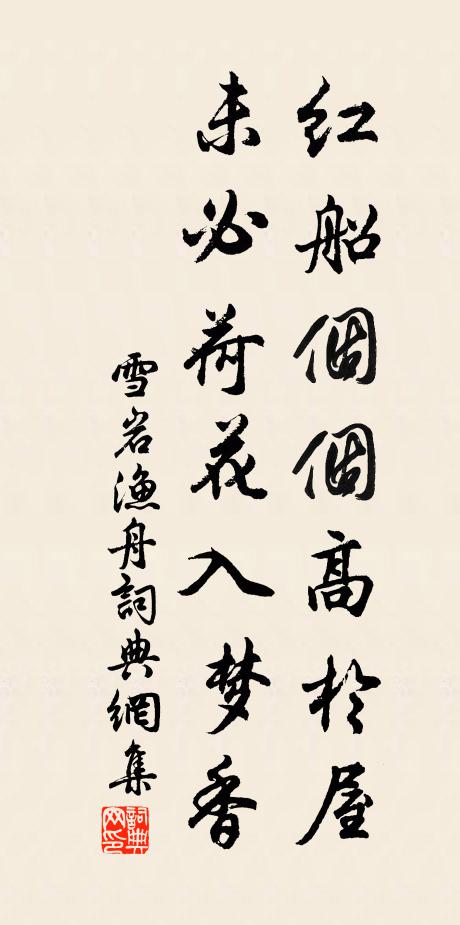 红船個個高於屋
未必荷花入梦香
雪岩渔舟詞典網集
詞典網印